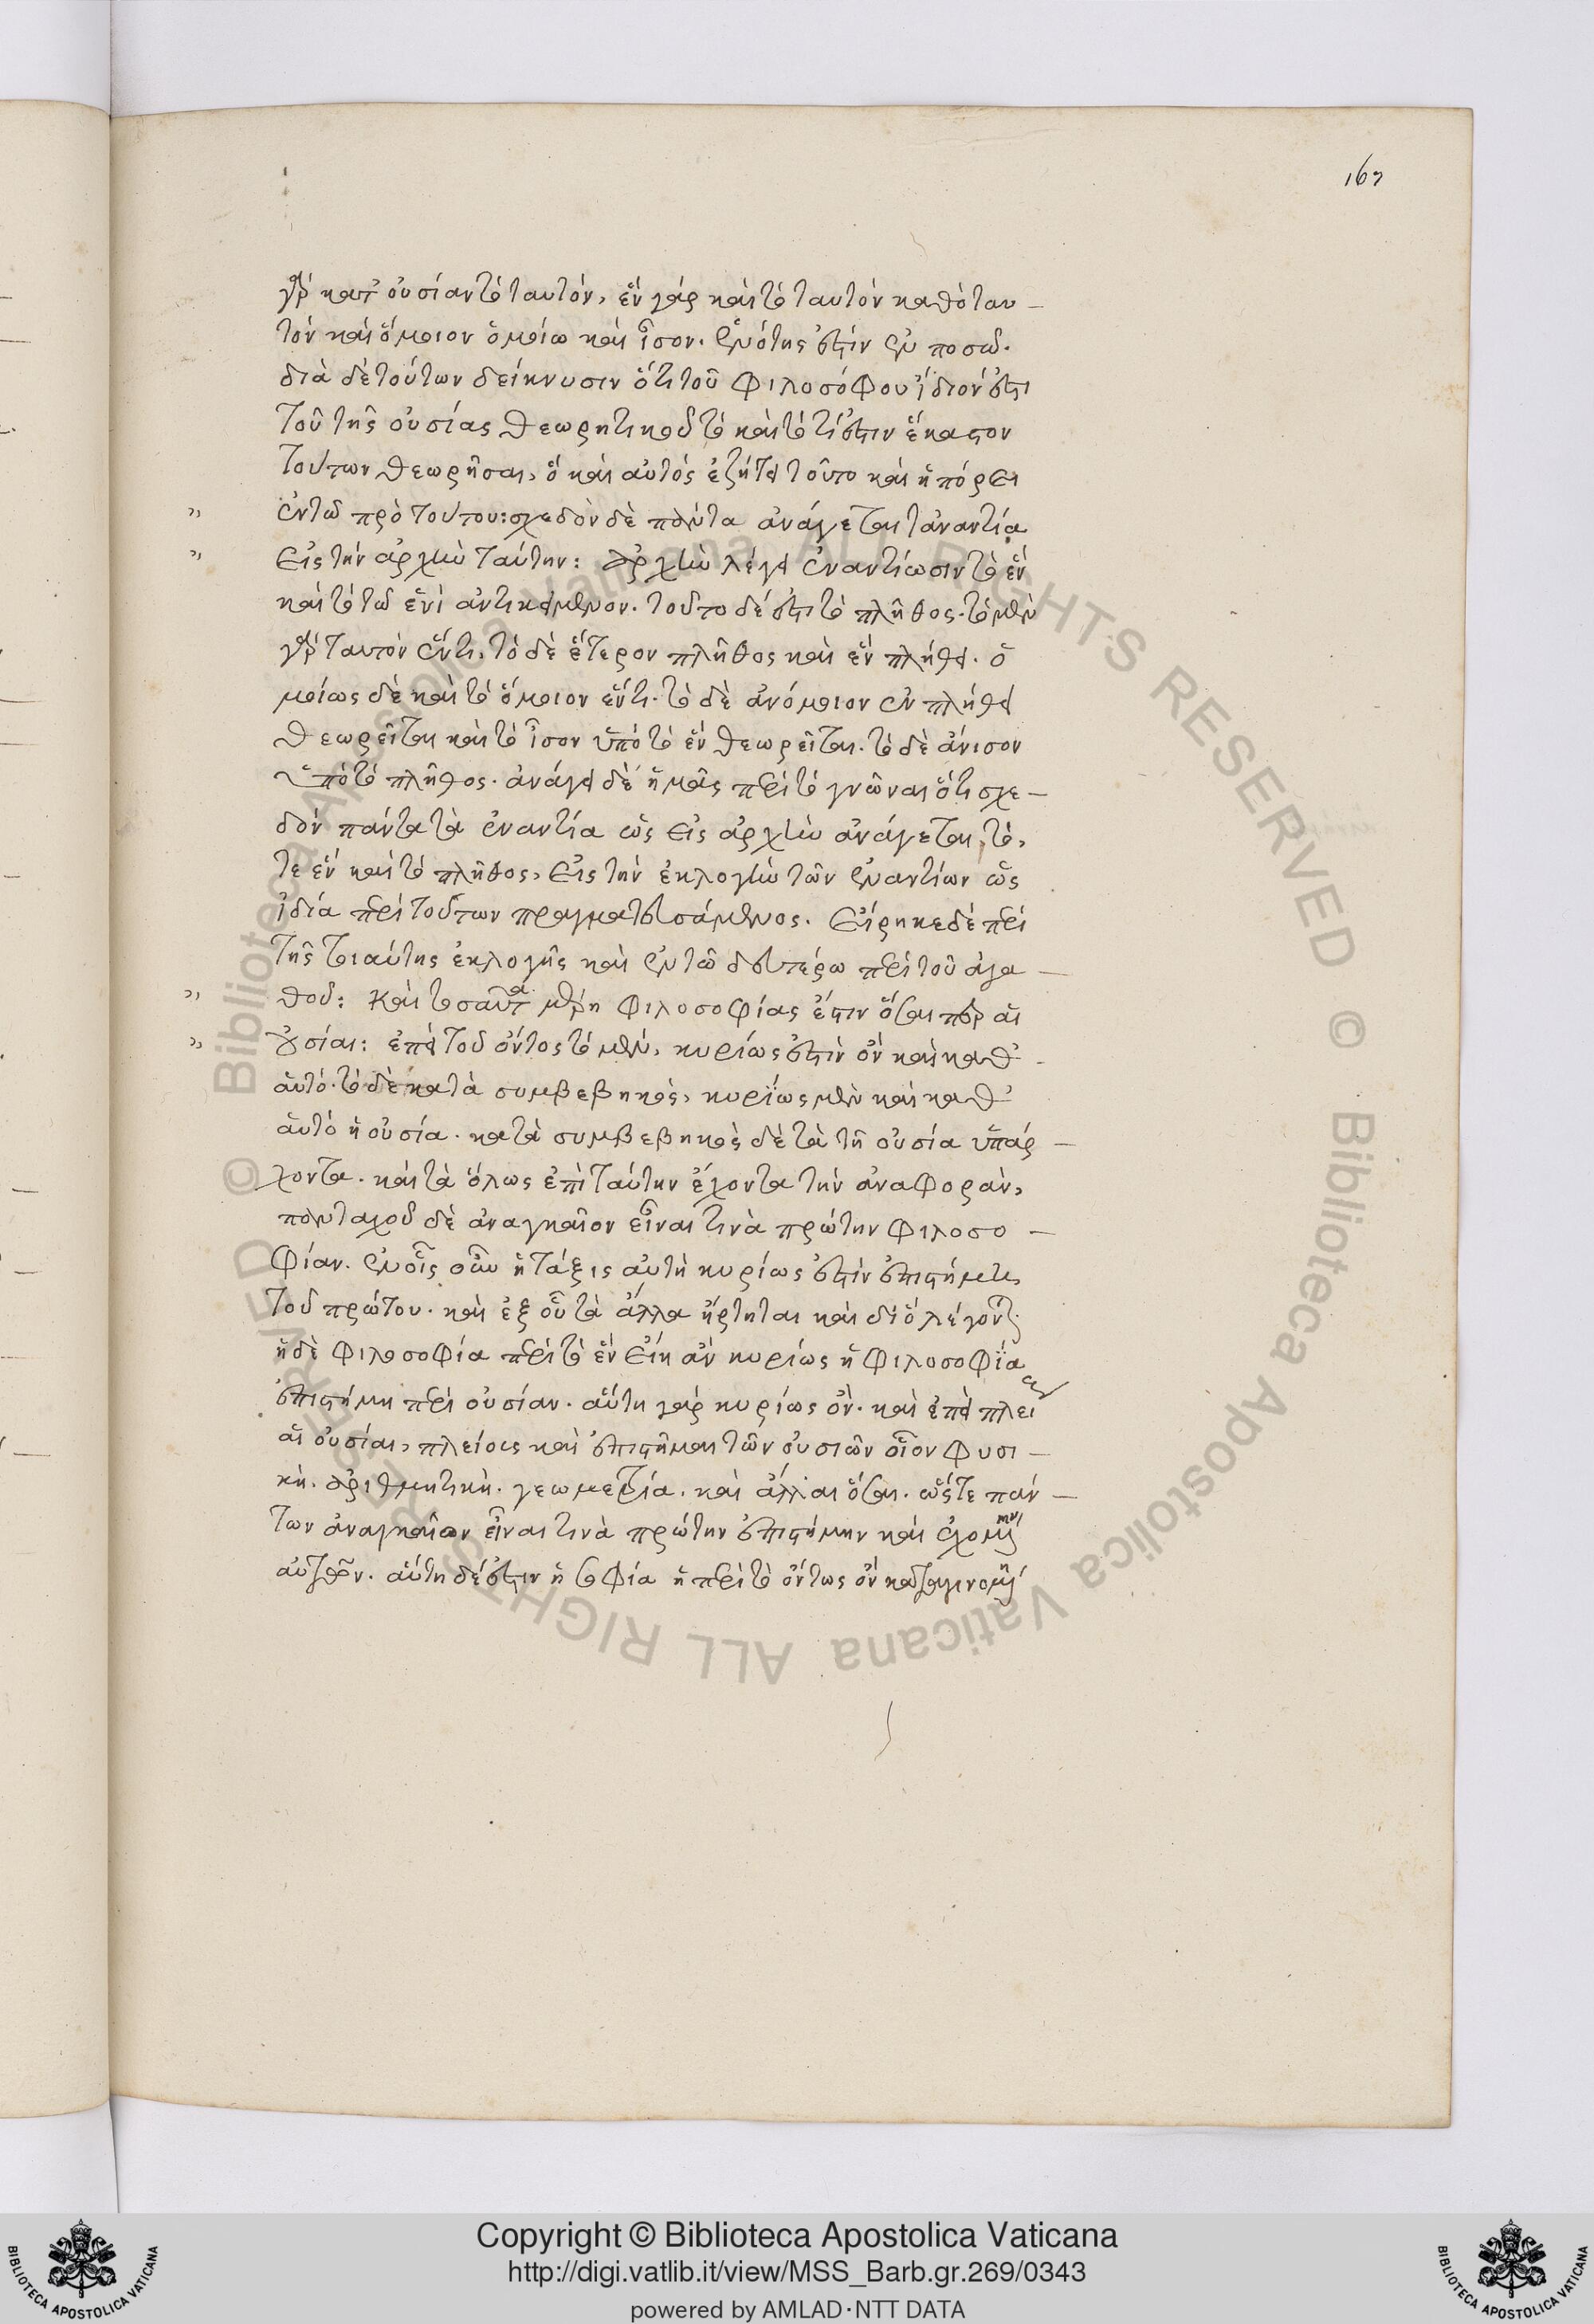 167
γὰρ κατ' οὐσίαν τὸ ταυτόν, ἓν γὰρ καὶ τὸ ταυτὸν καθὸ ταυ—
τόν καὶ ὅμοιον ὁμοίω καὶ ἶσον. ἑνότης ἐστὶν ἐν ποσῶ.
διὰ δὲ τούτων δείκνυσιν ὅτι τοῦ φιλοσόφου ἴδιόν ἐστι
τοῦ τῆς οὐσίας θεωρητικοῦ τὸ καὶ τὸ τί ἐστιν ἕκαστον
τούτων θεωρῆσαι, ὃ καὶ αὐτὸς ἐζήτει τοῦτο καὶ ἠπόρει
" ἐν τῶ πρὸ τούτου: σχεδὸν δὲ πάντα ἀνάγεται τἀναντία
" εἰς τὴν ἀρχὴν ταύτην: ἀρχὴν λέγει ἐναντίωσιν τὸ ἓν
καὶ τὸ τῶ ἑνὶ ἀντικείμενον. τοῦτο δέ ἐστι τὸ πλῆθος. τὸ μὲν
γὰρ ταυτὸν ἕν τι, τὸ δὲ ἕτερον πλῆθος καὶ ἐν πλήθει. ὁ
μοίως δὲ καὶ τὸ ὅμοιον ἕν τι. τὸ δὲ ἀνόμοιον ἐν πλήθει
θεωρεῖται καὶ τὸ ἶσον ὑπὸ τὸ ἓν θεωρεῖται. τὸ δὲ ἄνισον
ὑπὸ τὸ πλῆθος. ἀνάγει δὲ ἡμᾶς περὶ τὸ γνῶναι ὅτι σχε—
δόν πάντα τὰ ἐναντία ὡς εἰς ἀρχὴν ἀνάγεται, τό,
τε ἓν καὶ τὸ πλῆθος, εἰς τὴν ἐκλογὴν τῶν ἐναντίων ὡς
ἰδία περὶ τούτων πραγματευσάμενος. εἴρηκε δὲ περὶ
τῆς τοιαύτης ἐκλογῆς καὶ ἐν τῶ δευτέρω περὶ τοῦ ἀγα—
" θοῦ: καὶ τοσαῦτα μέρη φιλοσοφίας ἔστιν ὅσαι περ αἱ
" οὐσίαι: ἐπεὶ τοῦ ὄντος τὸ μὲν, κυρίως ἐστὶν ὂν καὶ καθ'
αὑτό. τὸ δὲ κατὰ συμβεβηκός, κυρίως μὲν καὶ καθ'
αὑτό ἡ οὐσία. κατὰ συμβεβηκὸς δὲ τὰ τῆ οὐσία ὑπάρ—
χοντα. καὶ τὰ ὅλως ἐπὶ ταύτην ἔχοντα τὴν ἀναφοράν,
πανταχοῦ δὲ ἀναγκαῖον εἶναι τινὰ πρώτην φιλοσο—
φίαν. ἐν οἷς οὖν ἡ τάξις αὐτὴ κυρίως ἐστὶν ἐπιστήμη
τοῦ πρώτου. καὶ ἐξ οὗ τὰ ἄλλα ἤρτηται καὶ δι' ὃ λέγονται
ἡ δὲ φιλοσοφία περὶ τὸ ἓν εἴη ἂν κυρίως ἡ φιλοσοφία
ἐπιστήμη περὶ οὐσίαν. αὕτη γὰρ κυρίως ὄν. καὶ ἐπεὶ πλείους
αἱ οὐσίαι, πλείους καὶ ἐπιστῆμαι τῶν οὐσιῶν οἷον φυσι—
κή. ἀριθμητική. γεωμετρία. καὶ ἄλλαι ὅσαι. ὥστε πάν—
των ἀναγκαῖον εἶναι τινὰ πρώτην ἐπιστήμην καὶ ἐχομένην
αὐτῶν. αὕτη δέ ἐστιν ἡ σοφία ἡ περὶ τὸ ὄντως ὂν καταγινομένη
Copyright © Biblioteca Apostolica Vaticana
http://digi.vatlib.it/view/MSS_Barb.gr.269/0343
powered by AMLAD·NTT DATA